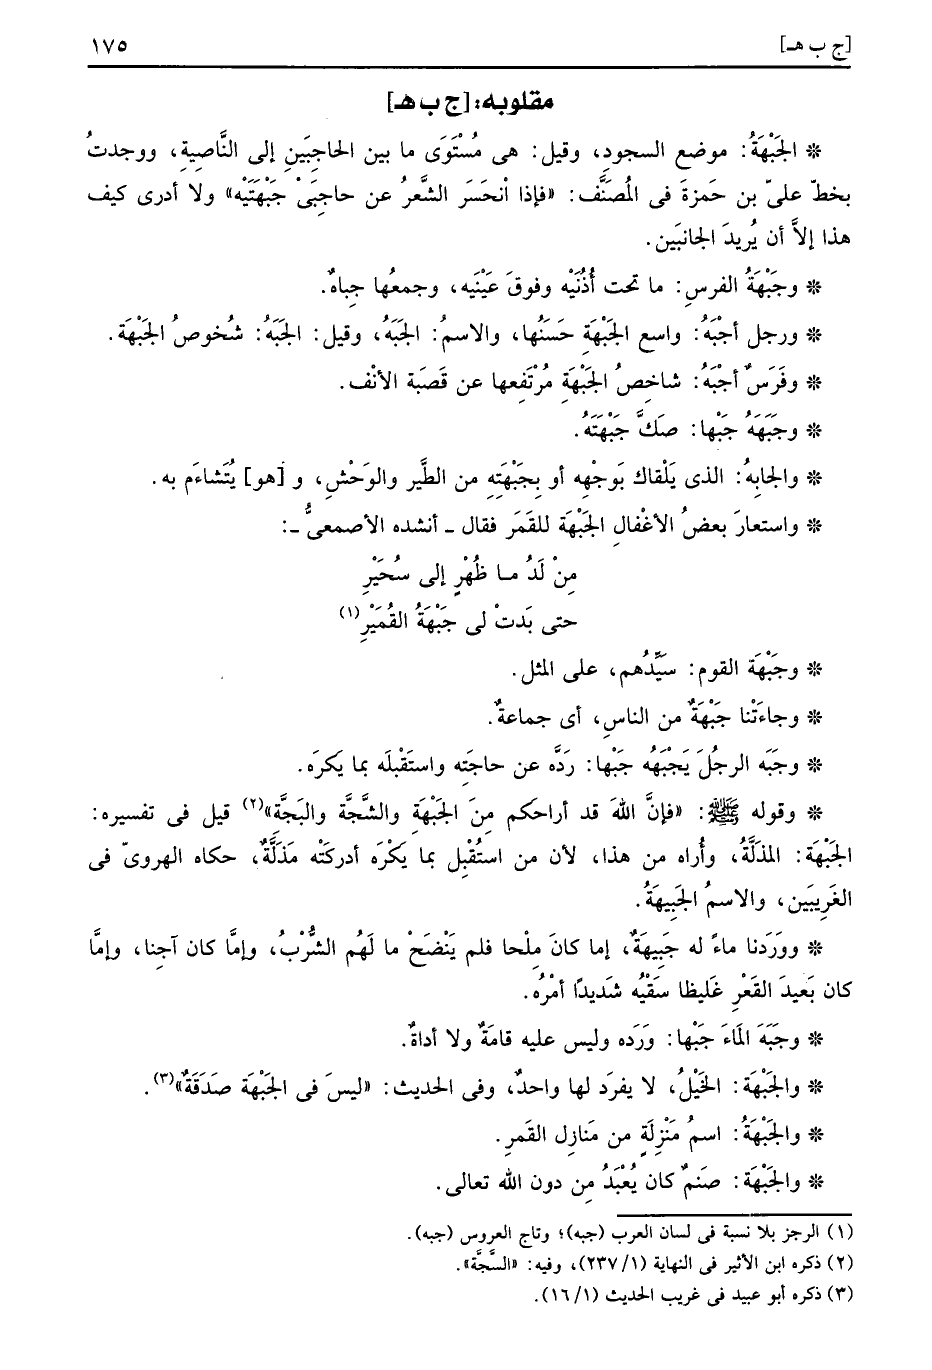 [ج ب هـ] ١٧٥
مقلوبه: [ج ب هـ]
* الجَبْهَةُ: موضع السجودِ، وقيل: هى مُسْتَوَى ما بين الحاجبَينِ إلى النَّاصيةِ، ووجدتُ
بخطّ علىّ بن حَمزةَ فى المُصَنَّف: «فإذا انْحَسَر الشَّعرُ عن حاجبَىْ جَبْهَتَيْه» ولا أدرى كيف
هذا إلاَّ أن يُريدَ الجانبَين.
* وجَبْهَةُ الفرسِ: ما تحت أُذُنَيْه وفوقَ عَيْنَيه، وجمعُها جباهٌ.
* ورجل أجْبَهُ: واسع الجَبْهَةِ حَسَنُها، والاسمُ: الجَبَهُ، وقيل: الجَبَهُ: شُخوصُ الجَبْهَة.
* وفَرَسٌ أجْبَهُ: شاخصُ الجَبْهَةِ مُرْتَفعها عن قَصَبَة الأنْف.
* وجَبَهَهُ جَبْها: صَكَّ جَبْهَتَهُ.
* والجابهُ: الذى يَلْقاك بَوجْهِه أو بِجَبْهَتِه من الطَّير والوَحْشِ، و [هو] يُتَشاءَم به.
* واستعارَ بعضُ الأغْفالِ الجَبْهَة للقمَرَ فقال ـ أنشده الأصمعىُّ ـ:
مِنْ لَدُ ما ظُهْرٍ إلى سُحَيْرِ
حتى بَدتْ لى جَبْهَةُ القُمَيْرِ(١)
* وجَبْهَة القوم: سَيِّدُهم، على المثل.
* وجاءَتْنا جَبْهَةٌ من الناسِ، أى جماعةٌ.
* وجَبَه الرجُلَ يَجْبَهُه جَبْها: رَدَّه عن حاجَتِه واستَقْبلَه بما يَكرَه.
* وقوله ﷺ: «فإنَّ اللهَ قد أراحَكم مِنَ الجَبْهَةِ والشَّجَّة والبَجَّة»(٢) قيل فى تفسيره:
الجَبْهَة: المذلَّةُ، وأُراه من هذا، لأن من استُقْبِل بما يَكْرَه أدركَتْه مَذَلَّةٌ، حكاه الهروىّ فى
الغَريبَين، والاسمُ الجَبيهَةُ.
* ووَرَدنا ماءً له جَبِيهَةٌ، إما كانَ مِلْحا فلم يَنْضَحْ ما لَهُم الشُّرْبُ، وإمَّا كان آجنا، وإمَّا
كان بَعيدَ القَعْرِ غَليظا سَقْيُه شَديدًا أمْرُه.
* وجَبَهَ المَاءَ جَبْها: وَرَده وليس عليه قامَةٌ ولا أداةٌ.
* والجَبْهَة: الخَيْلُ، لا يفرَد لها واحدٌ، وفى الحديث: «ليسَ فى الجَبْهَة صَدَقَةٌ»(٣).
* والجَبْهَةُ: اسمُ مَنْزِلَةٍ من مَنازل القمَرِ.
* والجَبْهَة: صَنَمٌ كان يُعْبَدُ مِن دون الله تعالى.
(١) الرجز بلا نسبة فى لسان العرب (جبه)؛ وتاج العروس (جبه).
(٢) ذكره ابن الأثير فى النهاية (١/ ٢٣٧)، وفيه: «السَّجَّة».
(٣) ذكره أبو عبيد فى غريب الحديث (١/ ١٦).